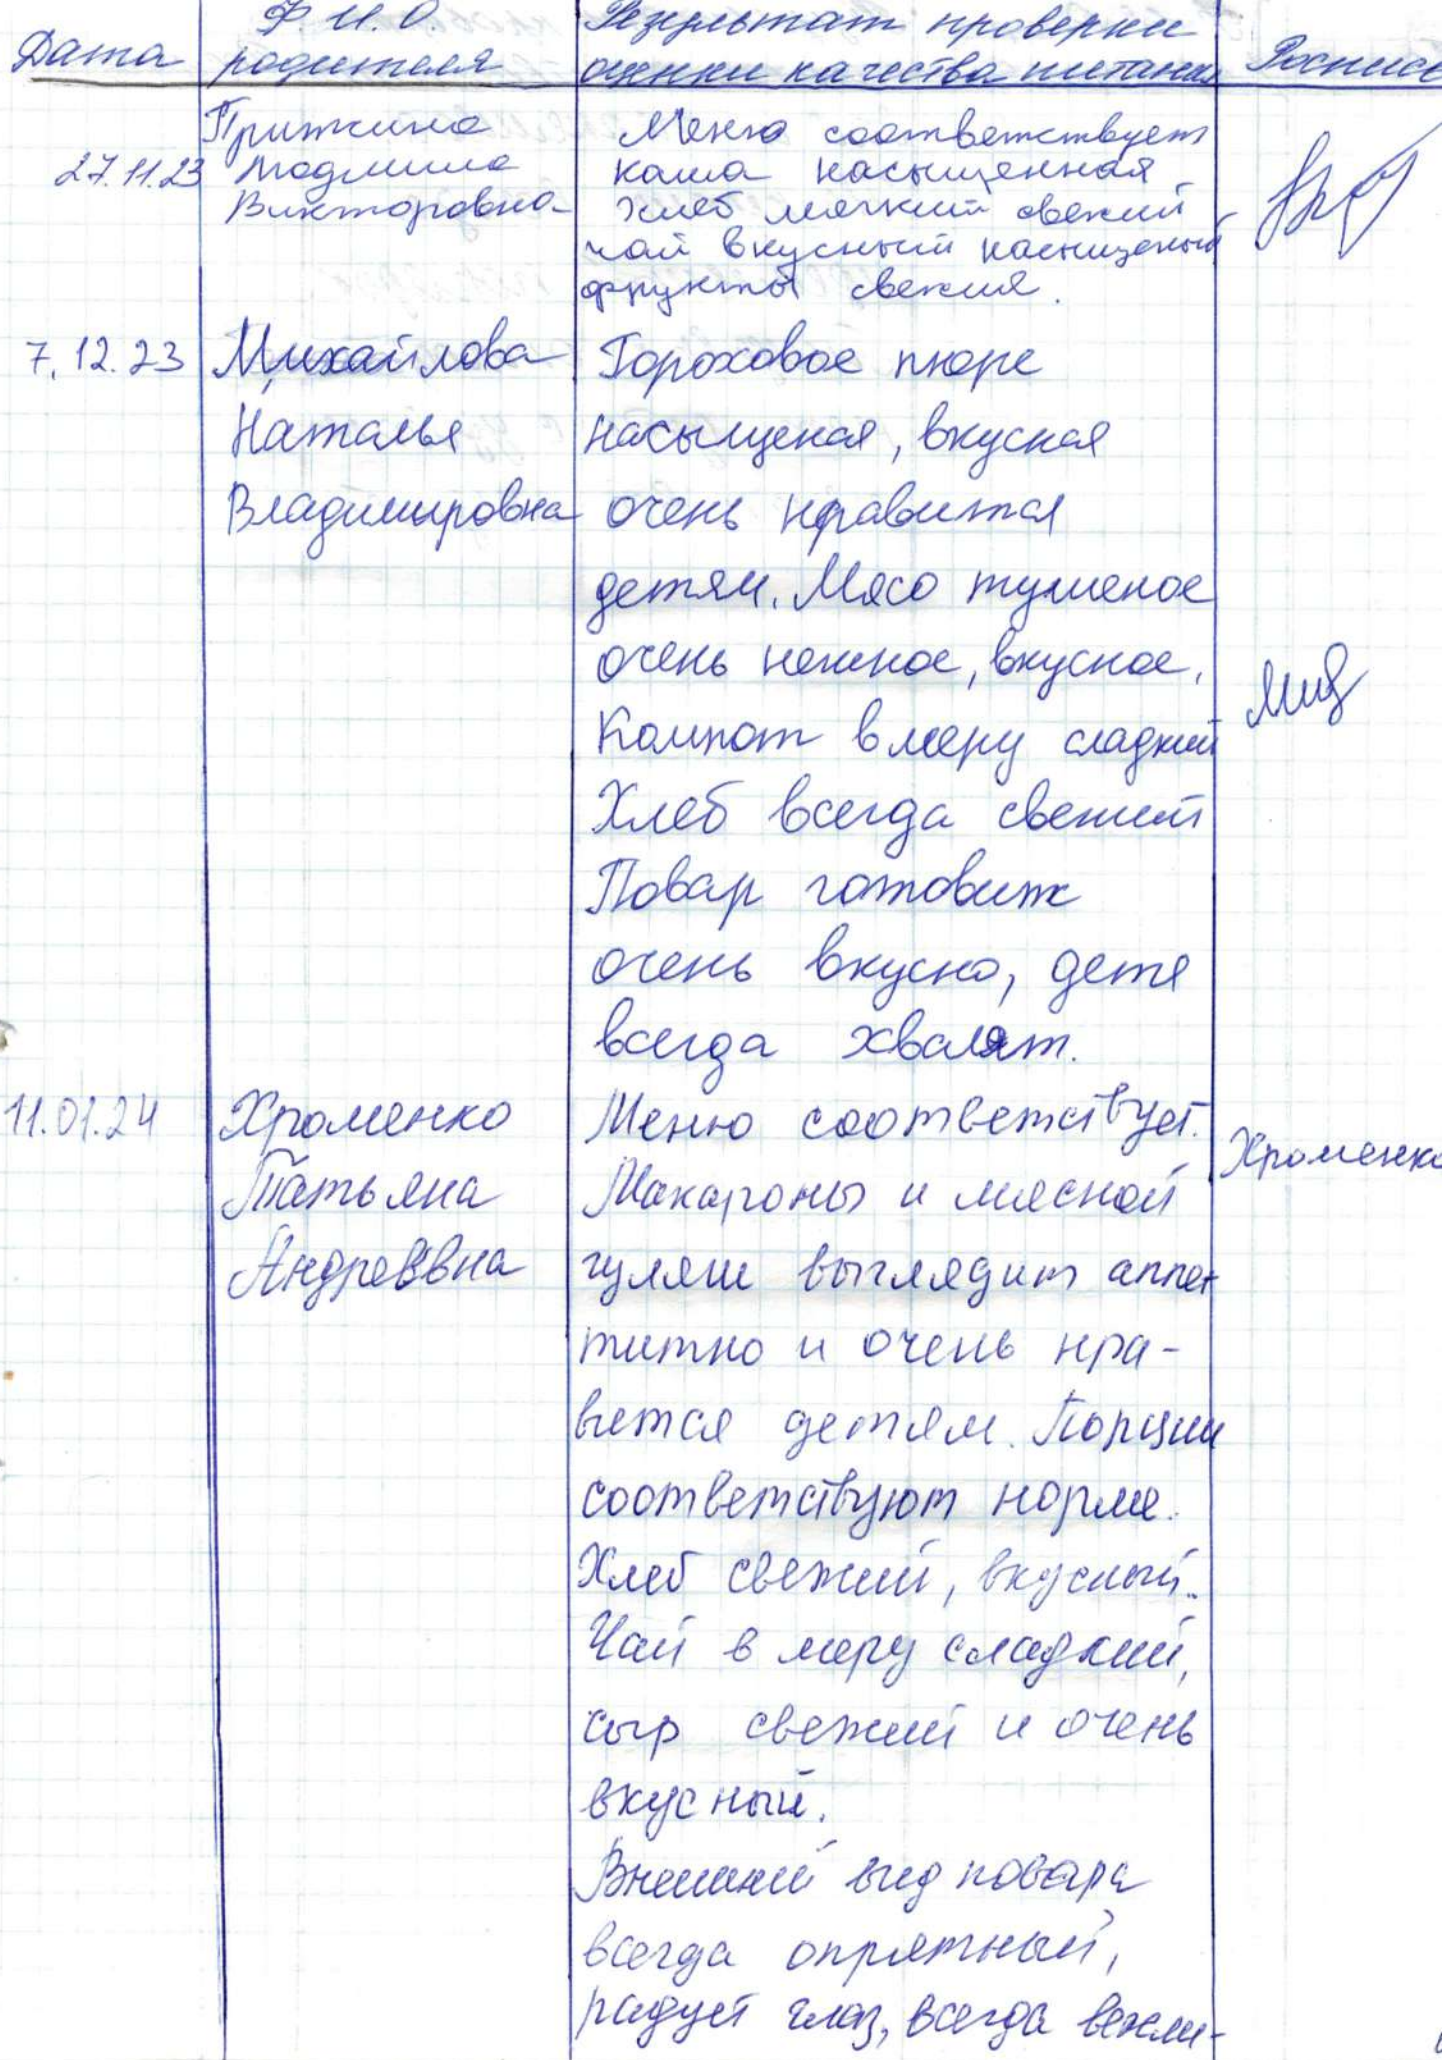 Дата
Ф.И.О. родителя
Результат проверки
оценки качества питания
Роспись
27.11.23
Людмила
Викторовна
Меню соответствует
каша насыщенная
хлеб мягкий свежий
чай вкусный насыщеный
фрукты свежие.
7.12.23 Михайлова Гороховое пюре
Наталья насыщеная, вкусная
Владимировна очень нравится
детям. Мясо тушеное
очень нежное, вкусное,
Компот в меру сладкий
Хлеб всегда свежий
Повар готовит
очень вкусно, дети
всегда хвалят.
11.01.24 Хроменко Меню соответствует. Хроменко
Татьяна Макароны и мясной
Андреевна гуляш выглядит аппе-
титно и очень нра-
вится детям. Порции
соответствуют норме.
Хлеб свежий, вкусный.
Чай в меру сладкий,
сыр свежий и очень
вкусный.
Внешний вид повара
всегда опрятный,
радует глаз, всегда вежли-